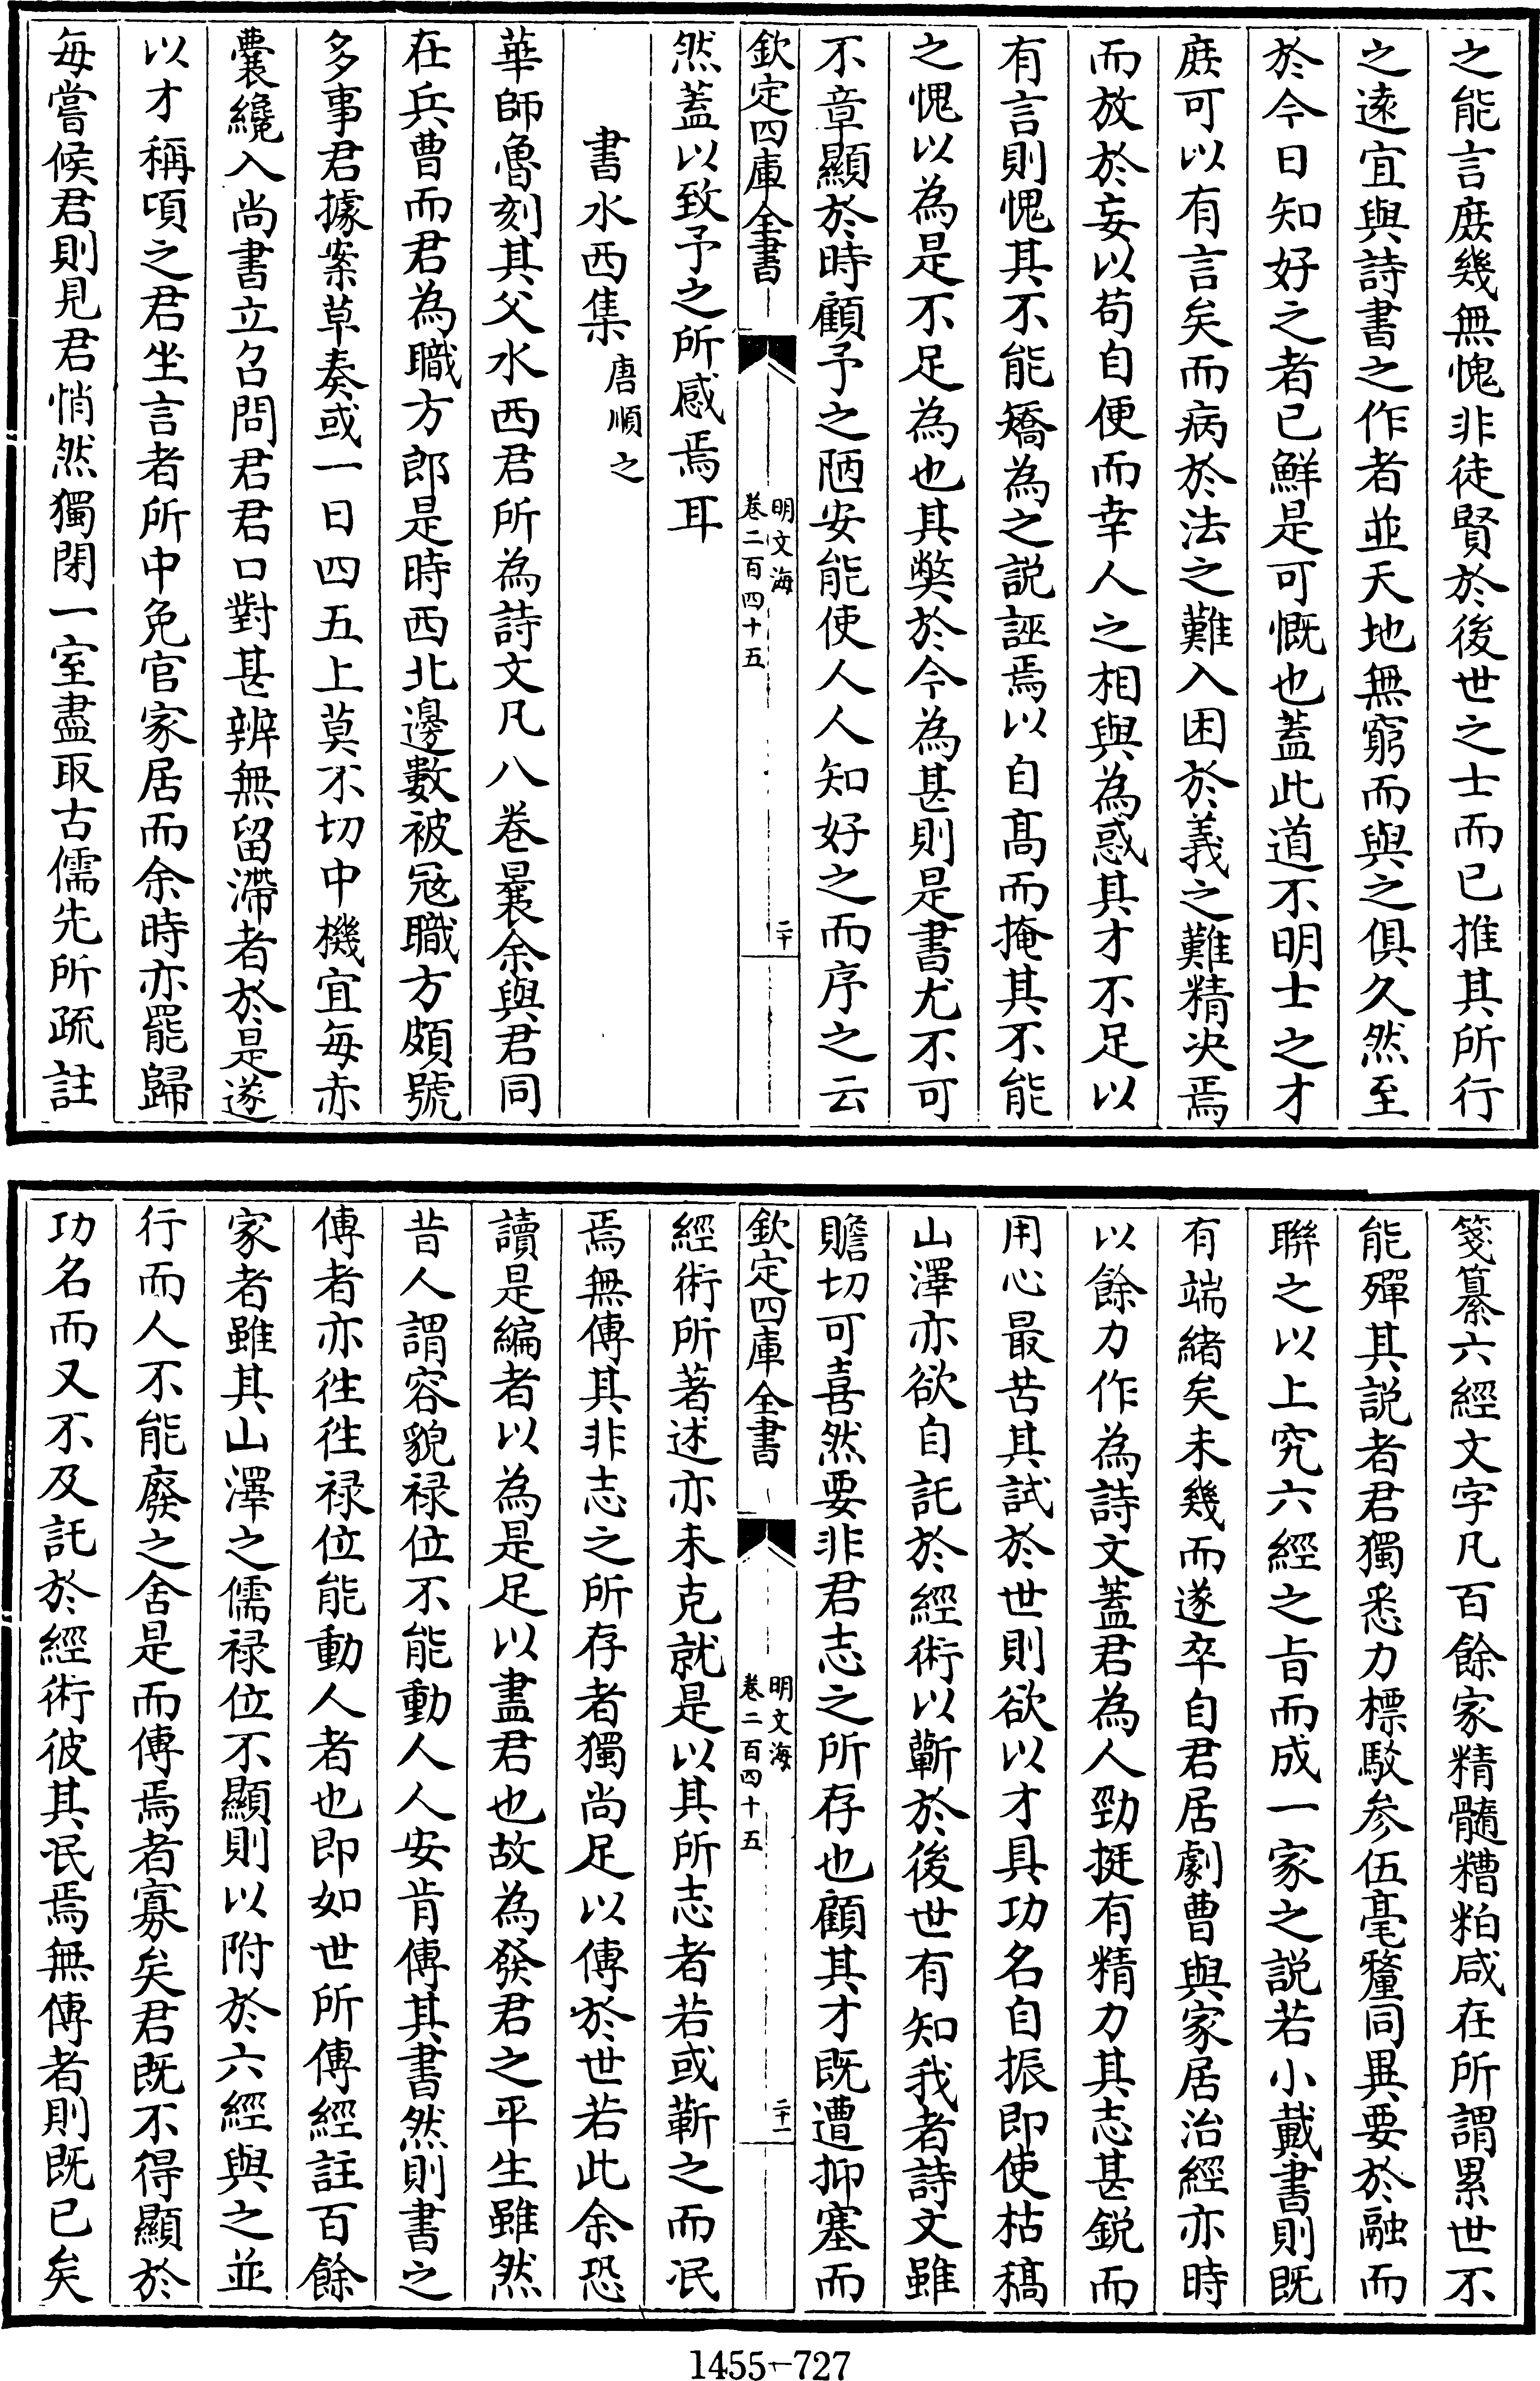 之能言庶幾無愧非徒賢於後世之士而已推其所行
之逺宜與詩書之作者並天地無窮而與之俱久然至
於今日知好之者已鮮是可慨也蓋此道不明士之才
庶可以有言矣而病於法之難入困於義之難精决焉
而放於妄以苟自便而幸人之相與為惑其才不足以
有言則愧其不能矯為之説誣焉以自髙而掩其不能
之愧以為是不足為也其弊於今為甚則是書尤不可
不章顯於時顧予之陋安能使人人知好之而序之云
欽定四庫全書
明文海
卷二百四十五
二十
然蓋以致予之所感焉耳
書水西集 唐順之
華師魯刻其父水西君所為詩文凡八卷曩余與君同
在兵曹而君為職方郎是時西北邊數被冦職方頗號
多事君據案草奏或一日四五上莫不切中機宜每赤
囊纔入尚書立召問君君口對甚辨無留滯者於是遂
以才稱項之君坐言者所中免官家居而余時亦罷歸
每嘗候君則見君悄然獨閉一室盡取古儒先所疏註
箋纂六經文字凡百餘家精髓糟粕咸在所謂累世不
能殫其説者君獨悉力標駮参伍毫釐同異要於融而
聯之以上究六經之旨而成一家之説若小戴書則既
有端緒矣未幾而遂卒自君居劇曹與家居治經亦時
以餘力作為詩文蓋君為人勁挺有精力其志甚鋭而
用心最苦其試於世則欲以才具功名自振即使枯稿
山澤亦欲自託於經術以蘄於後世有知我者詩文雖
贍切可喜然要非君志之所存也顧其才既遭抑塞而
欽定四庫全書
明文海
卷二百四十五
二十一
經術所著述亦未克就是以其所志者若或蘄之而泯
焉無傳其非志之所存者獨尚足以傳於世若此余恐
讀是編者以為是足以盡君也故為發君之平生雖然
昔人謂容貌禄位不能動人人安肯傳其書然則書之
傳者亦徃徃禄位能動人者也即如世所傳經註百餘
家者雖其山澤之儒禄位不顯則以附於六經與之並
行而人不能廢之舍是而傳焉者寡矣君既不得顯於
功名而又不及託於經術彼其泯焉無傳者則既已矣
1455-727